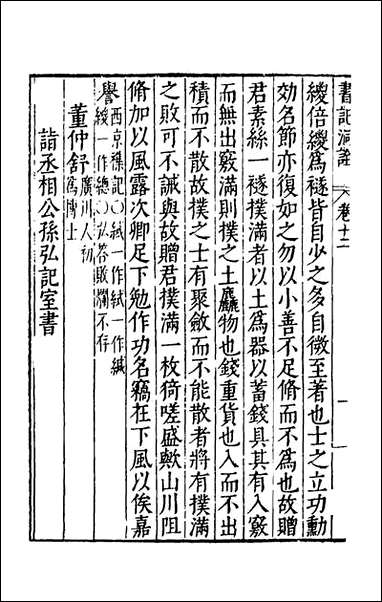 書記洞詮 卷十二 一
緵倍緵爲襚皆自少之多自微至著也士之立功勳
効名節亦復如之勿以小善不足脩而不爲也故贈
君素絲一襚撲滿者以土爲器以蓄錢具其有入竅
而無出竅滿則撲之土麤物也錢重貨也入而不出
積而不散故撲之士有聚斂而不能散者將有撲滿
之敗可不誡與故贈君撲滿一枚猗嗟盛歟山川阻
脩加以風露次卿足下勉作功名竊在下風以俟嘉
譽 西京襍記〇緎一作絨一作緘
緵一作總〇弘答敗爛不存
董仲舒 廣川人初
爲博士
詣丞相公孫弘記室書